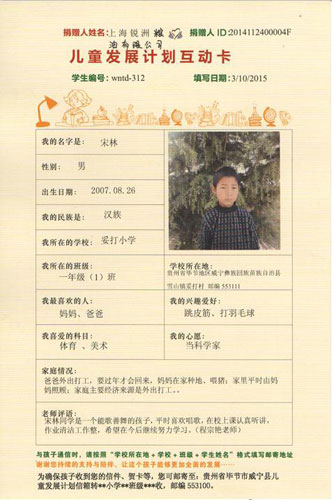 捐赠人姓名: 上海锐洲粮 捐赠人 ID:2014112400004F
油有限公司
儿童发展计划互动卡
学生编号: wntd-312 填写日期: 3/10/2015
我的名字是: 宋林
性别: 男
出生日期: 2007.08.26
我的民族是: 汉族
我所在的学校: 妥打小学
我所在的班级:
一年级（1）班
学校所在地:
贵州省毕节地区威宁彝族回族苗族自治县
雪山镇妥打村 邮编 553111
我最喜欢的人:
妈妈、爸爸
我的兴趣爱好:
跳皮筋、打羽毛球
我喜爱的科目:
体育 、美术
我的心愿:
当科学家
家庭情况:
爸爸外出打工，要过年才会回来，妈妈在家种地、喂猪；家里平时由妈
妈照顾；家庭主要经济来源是外出打工。。
老师评语:
宋林同学是一个能歌善舞的孩子，平时喜欢唱歌，在校上课认真听讲，
作业清洁工整，希望在今后继续努力学习。（程宗艳老师）
与孩子通信时，请按照“学校所在地＋学校＋班级＋学生姓名”格式填写邮寄地址
谢谢您持续的支持与陪伴、让这个孩子能够更加全面的发展……
为确保孩子收到您的信件、贺卡等，您可邮寄至：贵州省毕节市威宁县儿
童发展计划信箱转**小学**班级***收，邮编 553100.